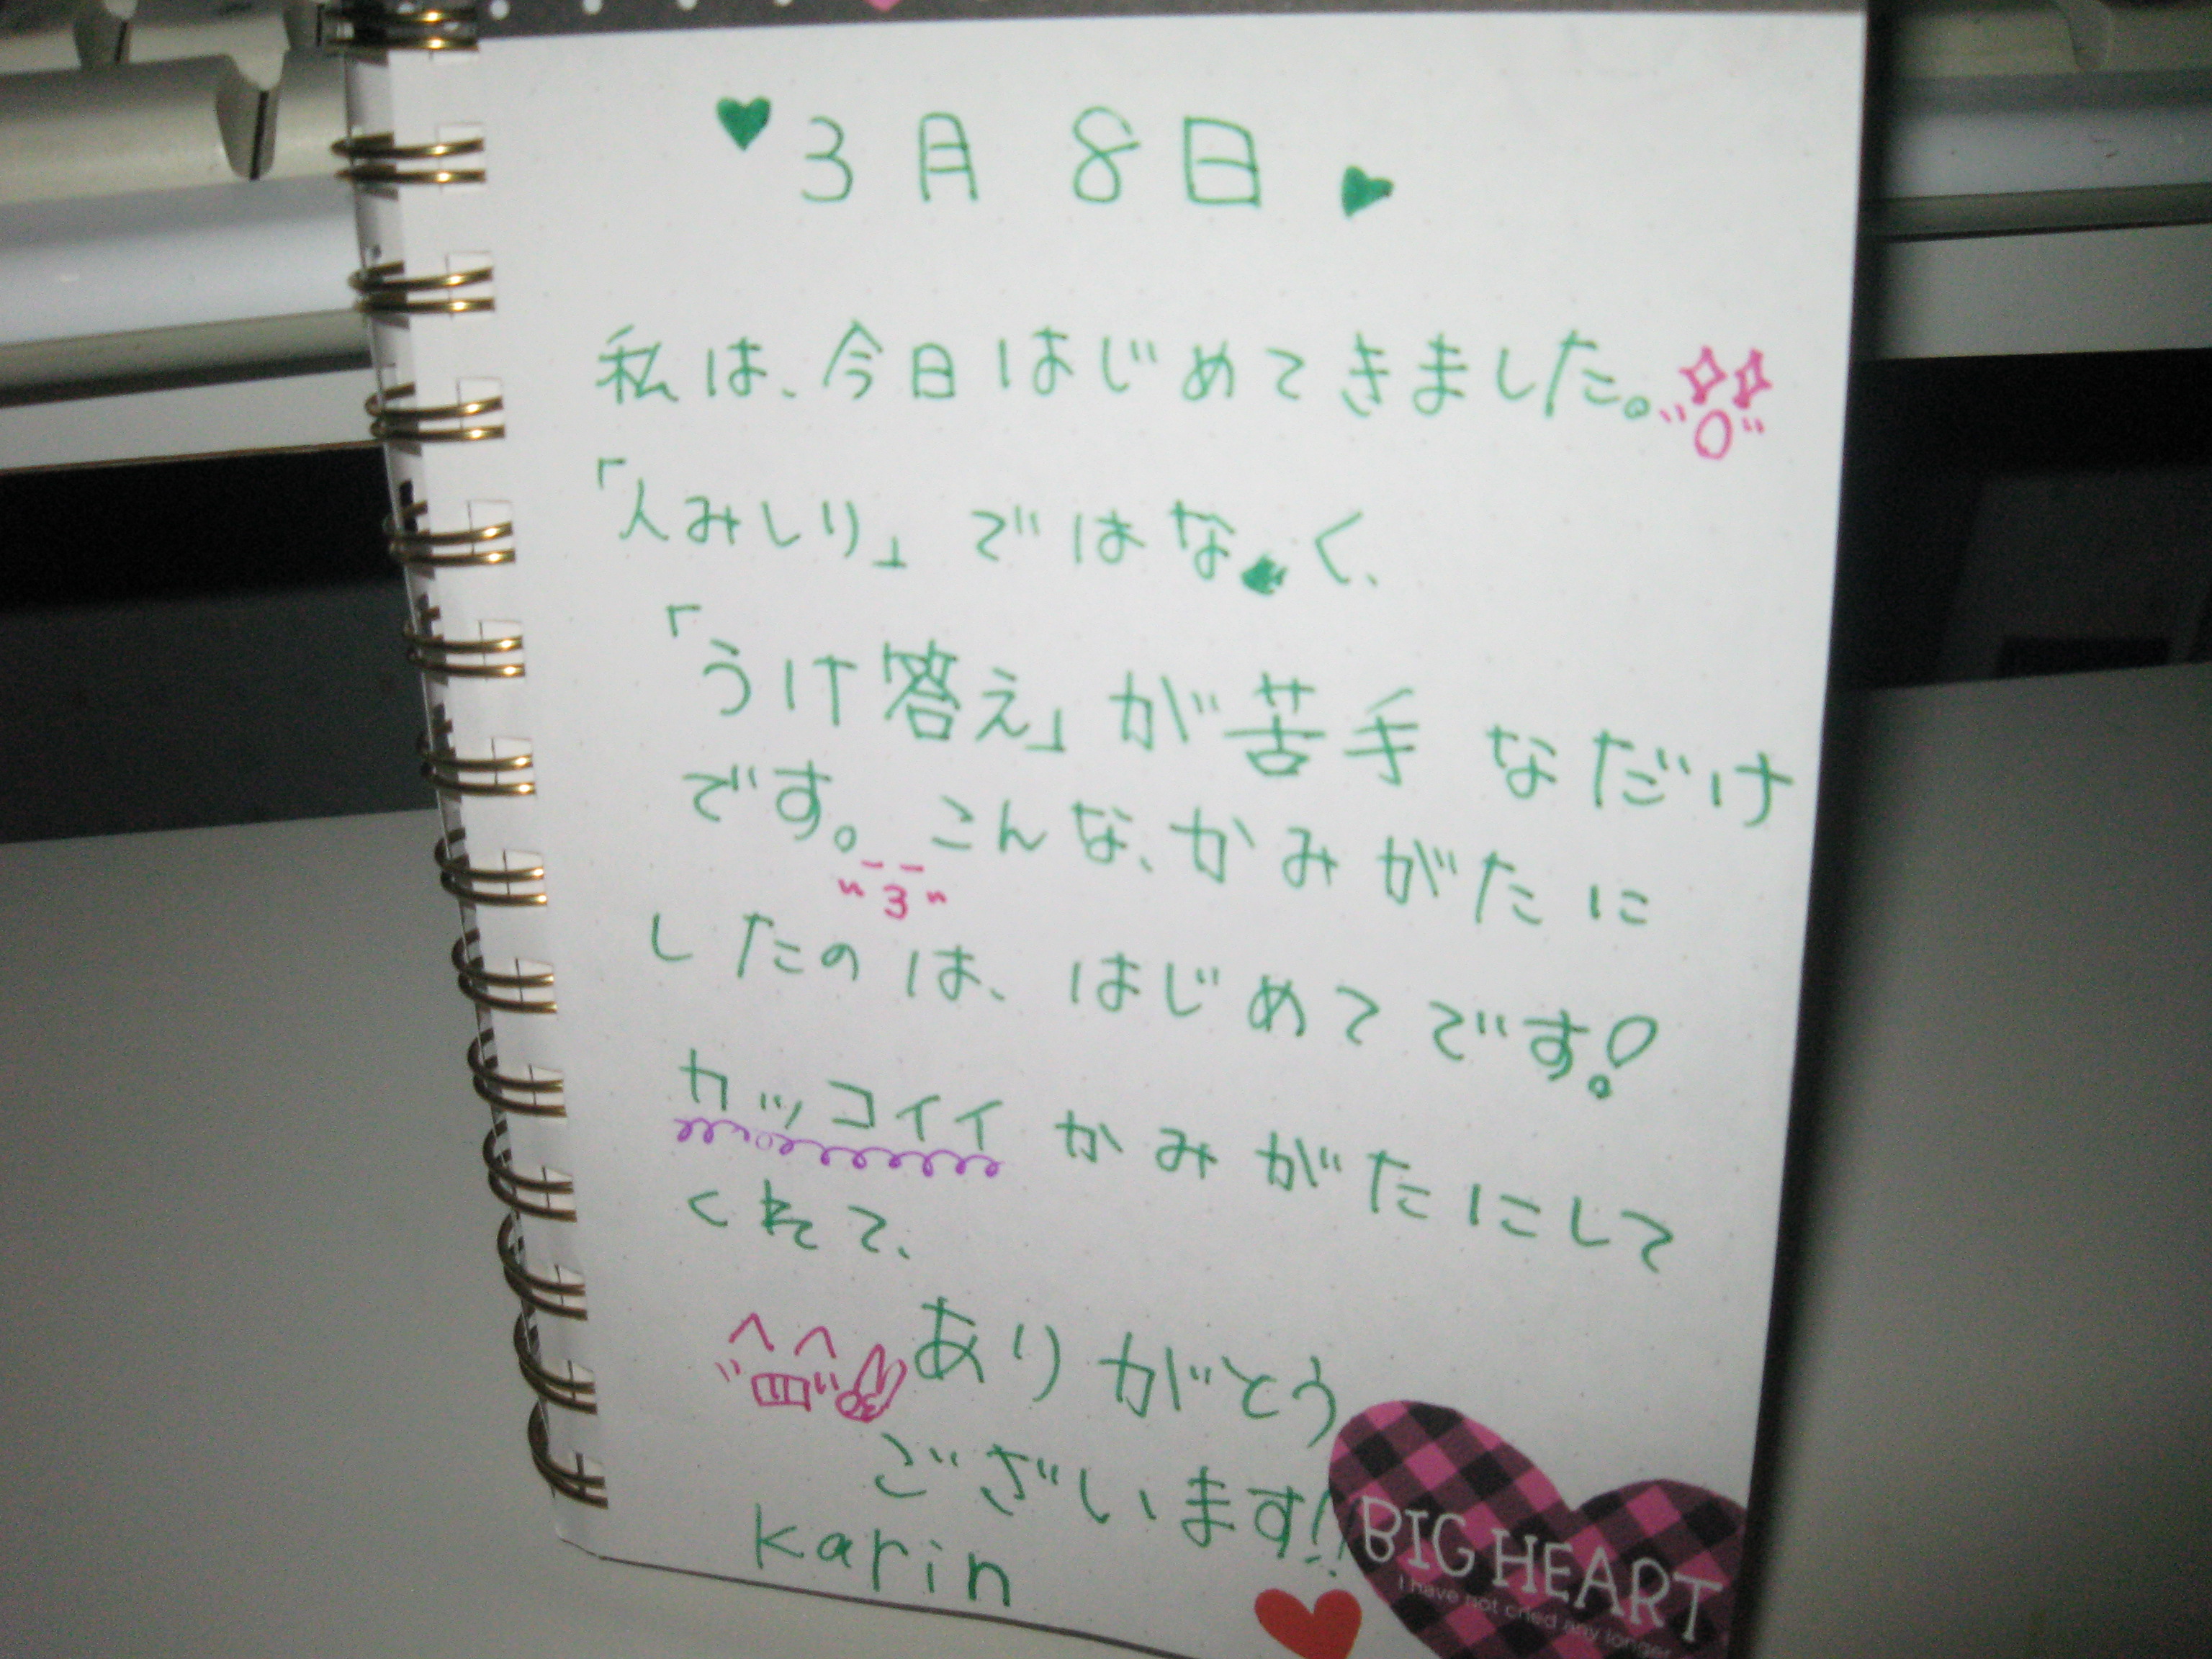 3月8日
私は、今日はじめてきました。
「人みしり」ではなく、
「うけ答え」が苦手なだけ
です。こんな、かみがたに
したのは、はじめてです!
カッコイイかみがたにして
くれて、
ありがとう
ございます!!
karin
BIG HEART
I have not cried any longer